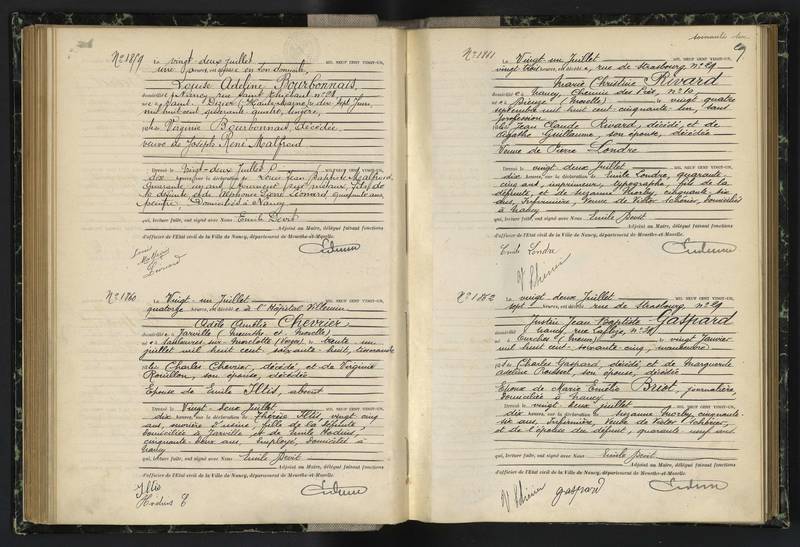 N° 1859 Le vingt-deux juillet MIL NEUF CENT VINGT-UN,
une heures, est décédée en son domicile,
Louise Adeline Bourbonnais,
domiciliée à Nancy, rue Saint Thiébaut n° 28
née à Saint-Dizier (Haute-Marne) le dix sept Juin,
mil huit cent quarante quatre, lingère,
fille de Virginie Bourbonnais, décédée
veuve de Joseph René Malfroid
Dressé le vingt-deux Juillet MIL NEUF CENT VINGT-UN,
dix heures, sur la déclaration de Louis Jean Baptiste Malfroid
quarante ans, fils de
la défunte, et de Alphonse Léonard, ans,
peintre, Domiciliés à Nancy
qui, lecture faite, ont signé avec Nous Emile Devit
Adjoint au Maire, délégué faisant fonctions
d'officier de l'Etat civil de la Ville de Nancy, département de Meurthe-et-Moselle.
Louis
Léonard
N° 1860 Le Vingt-un Juillet MIL NEUF CENT VINGT-UN,
quatorze heures, est décédée à l'Hôpital Villemin
Adèle Amélie Chevrier
domiciliée à Jarville (Meurthe et Moselle)
née à Saulxures-sur-Moselotte (Vosges) le trente un
juillet mil huit cent soixante-huit, tisserande
fille de Charles Chevrier, décédé, et de Virginie
Rouillon, son épouse, décédée
Epouse de Emile Iltis, absent
Dressé le Vingt-deux Juillet MIL NEUF CENT VINGT-UN,
dix heures, sur la déclaration de Thérèse Iltis, vingt cinq
ans, ouvrière d'usine, fille de la défunte,
domiciliée à Jarville et de Emile Hodius,
cinquante-deux ans, Employé, domicilié à
Nancy
qui, lecture faite, ont signé avec Nous Emile Devit
Adjoint au Maire, délégué faisant fonctions
d'officier de l'Etat civil de la Ville de Nancy, département de Meurthe-et-Moselle.
Iltis
Hodius E
soixante
69.
N° 1861 Le Vingt-un Juillet MIL NEUF CENT VINGT-UN,
vingt-trois heures, est décédée, rue de Strasbourg, n° 29
Marie Christine Rivard
domiciliée à Nancy Chemin des Prés, n° 10
née à Brieuze (Moselle) le vingt quatre
septembre mil huit cent cinquante-un, sans
profession
fille de Jean Claude Rivard, décédé, et de
Agathe Guillaume, son épouse, décédée
Veuve de Pierre Londre
Dressé le vingt deux Juillet MIL NEUF CENT VINGT-UN,
dix heures, sur la déclaration de Emile Londre, quarante-
cinq ans, imprimeur, typographe, fils de la
défunte, et de Suzanne Morley, cinquante six
ans, Infirmière, Veuve de Victor Schérer, domiciliés
à Nancy
qui, lecture faite, ont signé avec Nous Emile Devit
Adjoint au Maire, délégué faisant fonctions
d'officier de l'Etat civil de la Ville de Nancy, département de Meurthe-et-Moselle.
Emile Londre
V Schérer
N° 1862 Le vingt-deux Juillet MIL NEUF CENT VINGT-UN,
sept heures, est décédé rue de Strasbourg, n° 29
Justin Jean Baptiste Gaspard
domicilié à Nancy, rue n° 10
né à Ourches (Meuse) le vingt Janvier
mil huit cent-soixante-cinq, manœuvre
fils de Charles Gaspard, décédé, et de Marguerite
Adeline Roussel, son épouse, décédée
Epoux de Marie Emélie Briot, journalière,
domiciliée à Nancy
Dressé le vingt deux juillet MIL NEUF CENT VINGT-UN,
dix heures, sur la déclaration de Suzanne Morley, cinquante-
six ans, Infirmière, Veuve de Victor Schérer,
et de l'épouse du défunt, quarante neuf ans
qui, lecture faite, ont signé avec Nous Emile Devit
Adjoint au Maire, délégué faisant fonctions
d'officier de l'Etat civil de la Ville de Nancy, département de Meurthe-et-Moselle.
V Schérer gaspard